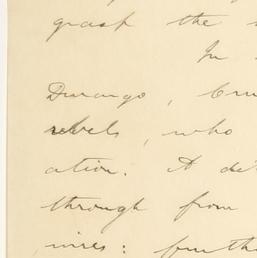 grasp the
In
Durango,
rebels, who
ation. A de
through from
wires: furth